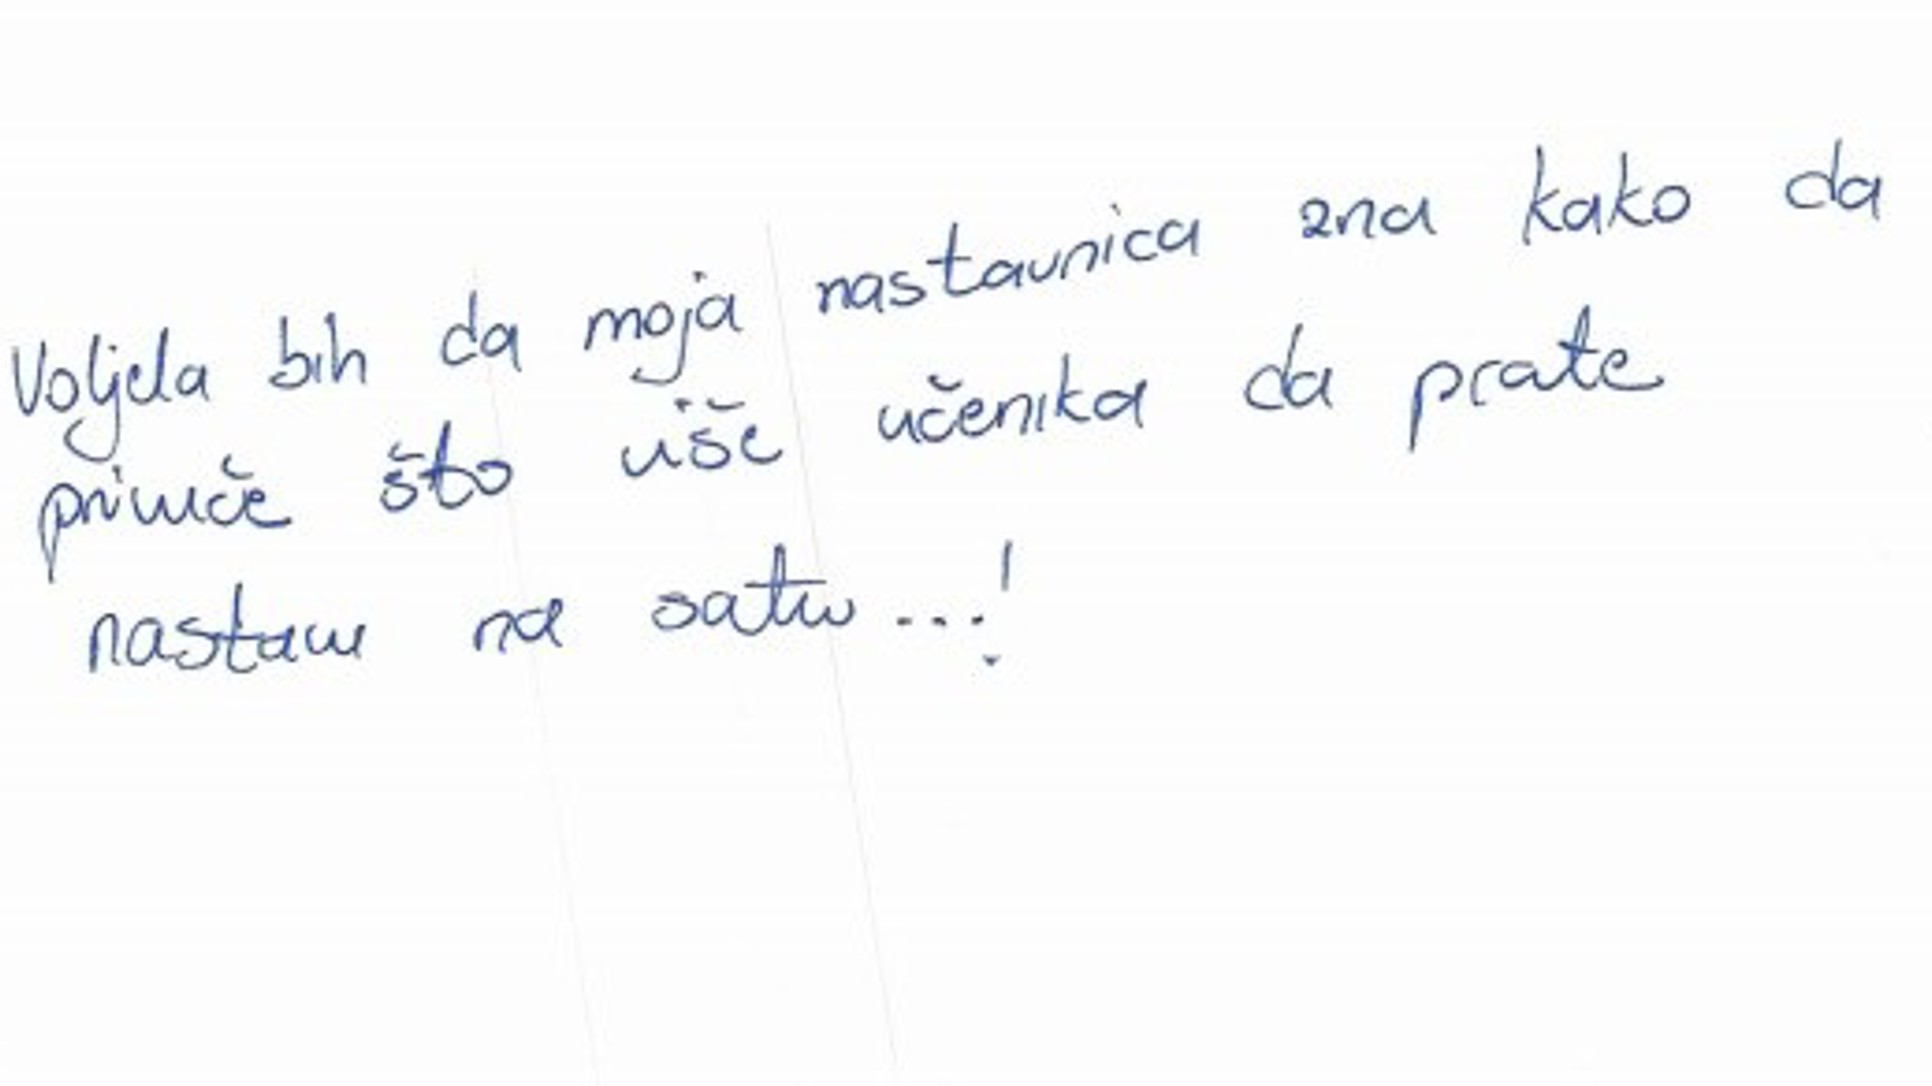 Voljela bih da moja nastavnica zna kako da
privuče što više učenika da prate
nastavu na satu...!